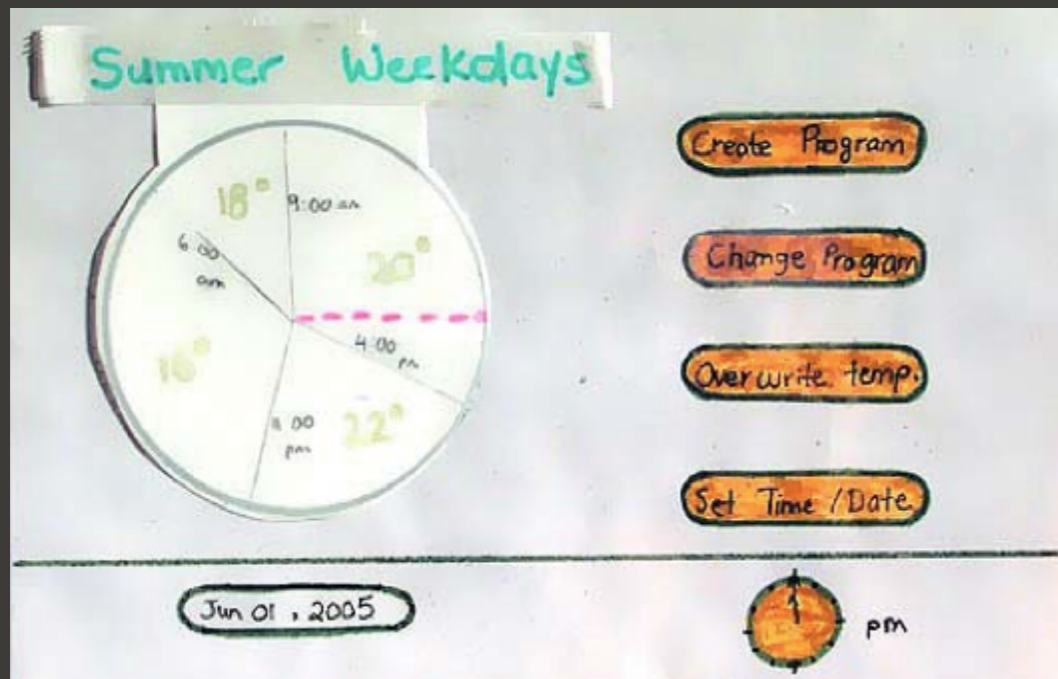 Summer Weekdays
18°
9:00 am
6:00
am
20°
4:00
pm
16°
22°
pm
Create Program
Change Program
Overwrite temp.
Set Time / Date
Jun 01, 2005
pm